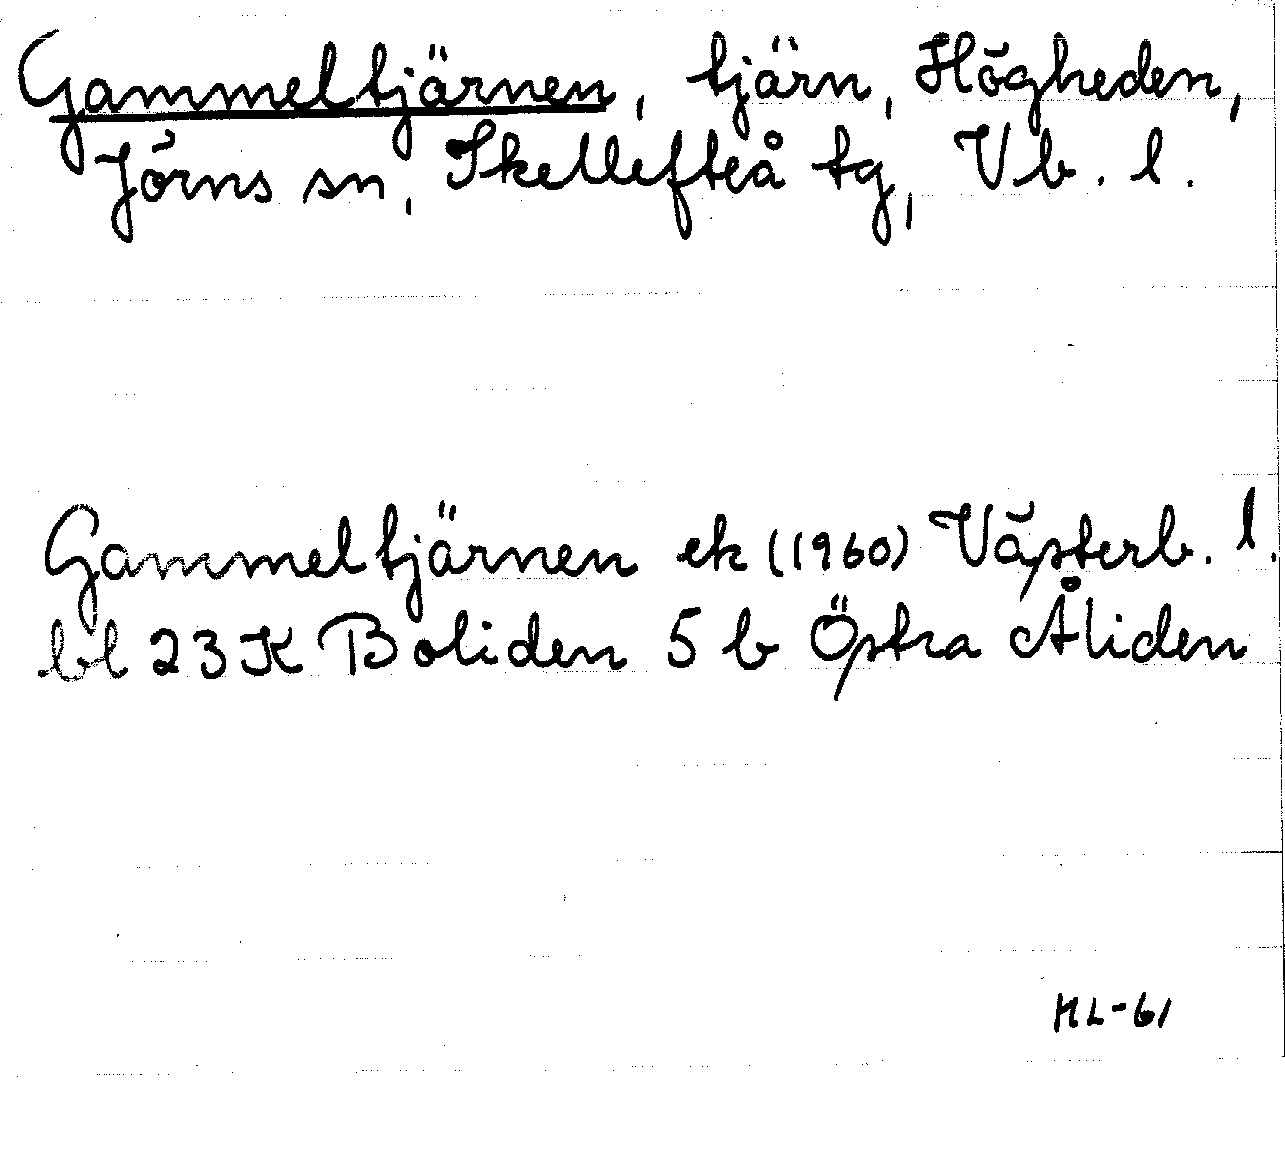 Gammeltjärnen, tjärn, Högheden,
Jörns sn, Skellefteå tg, Vb. l.
Gammeltjärnen ek (1960) Västerb. l.
bl 23 K Boliden 5 b Östra Åliden
HL-61